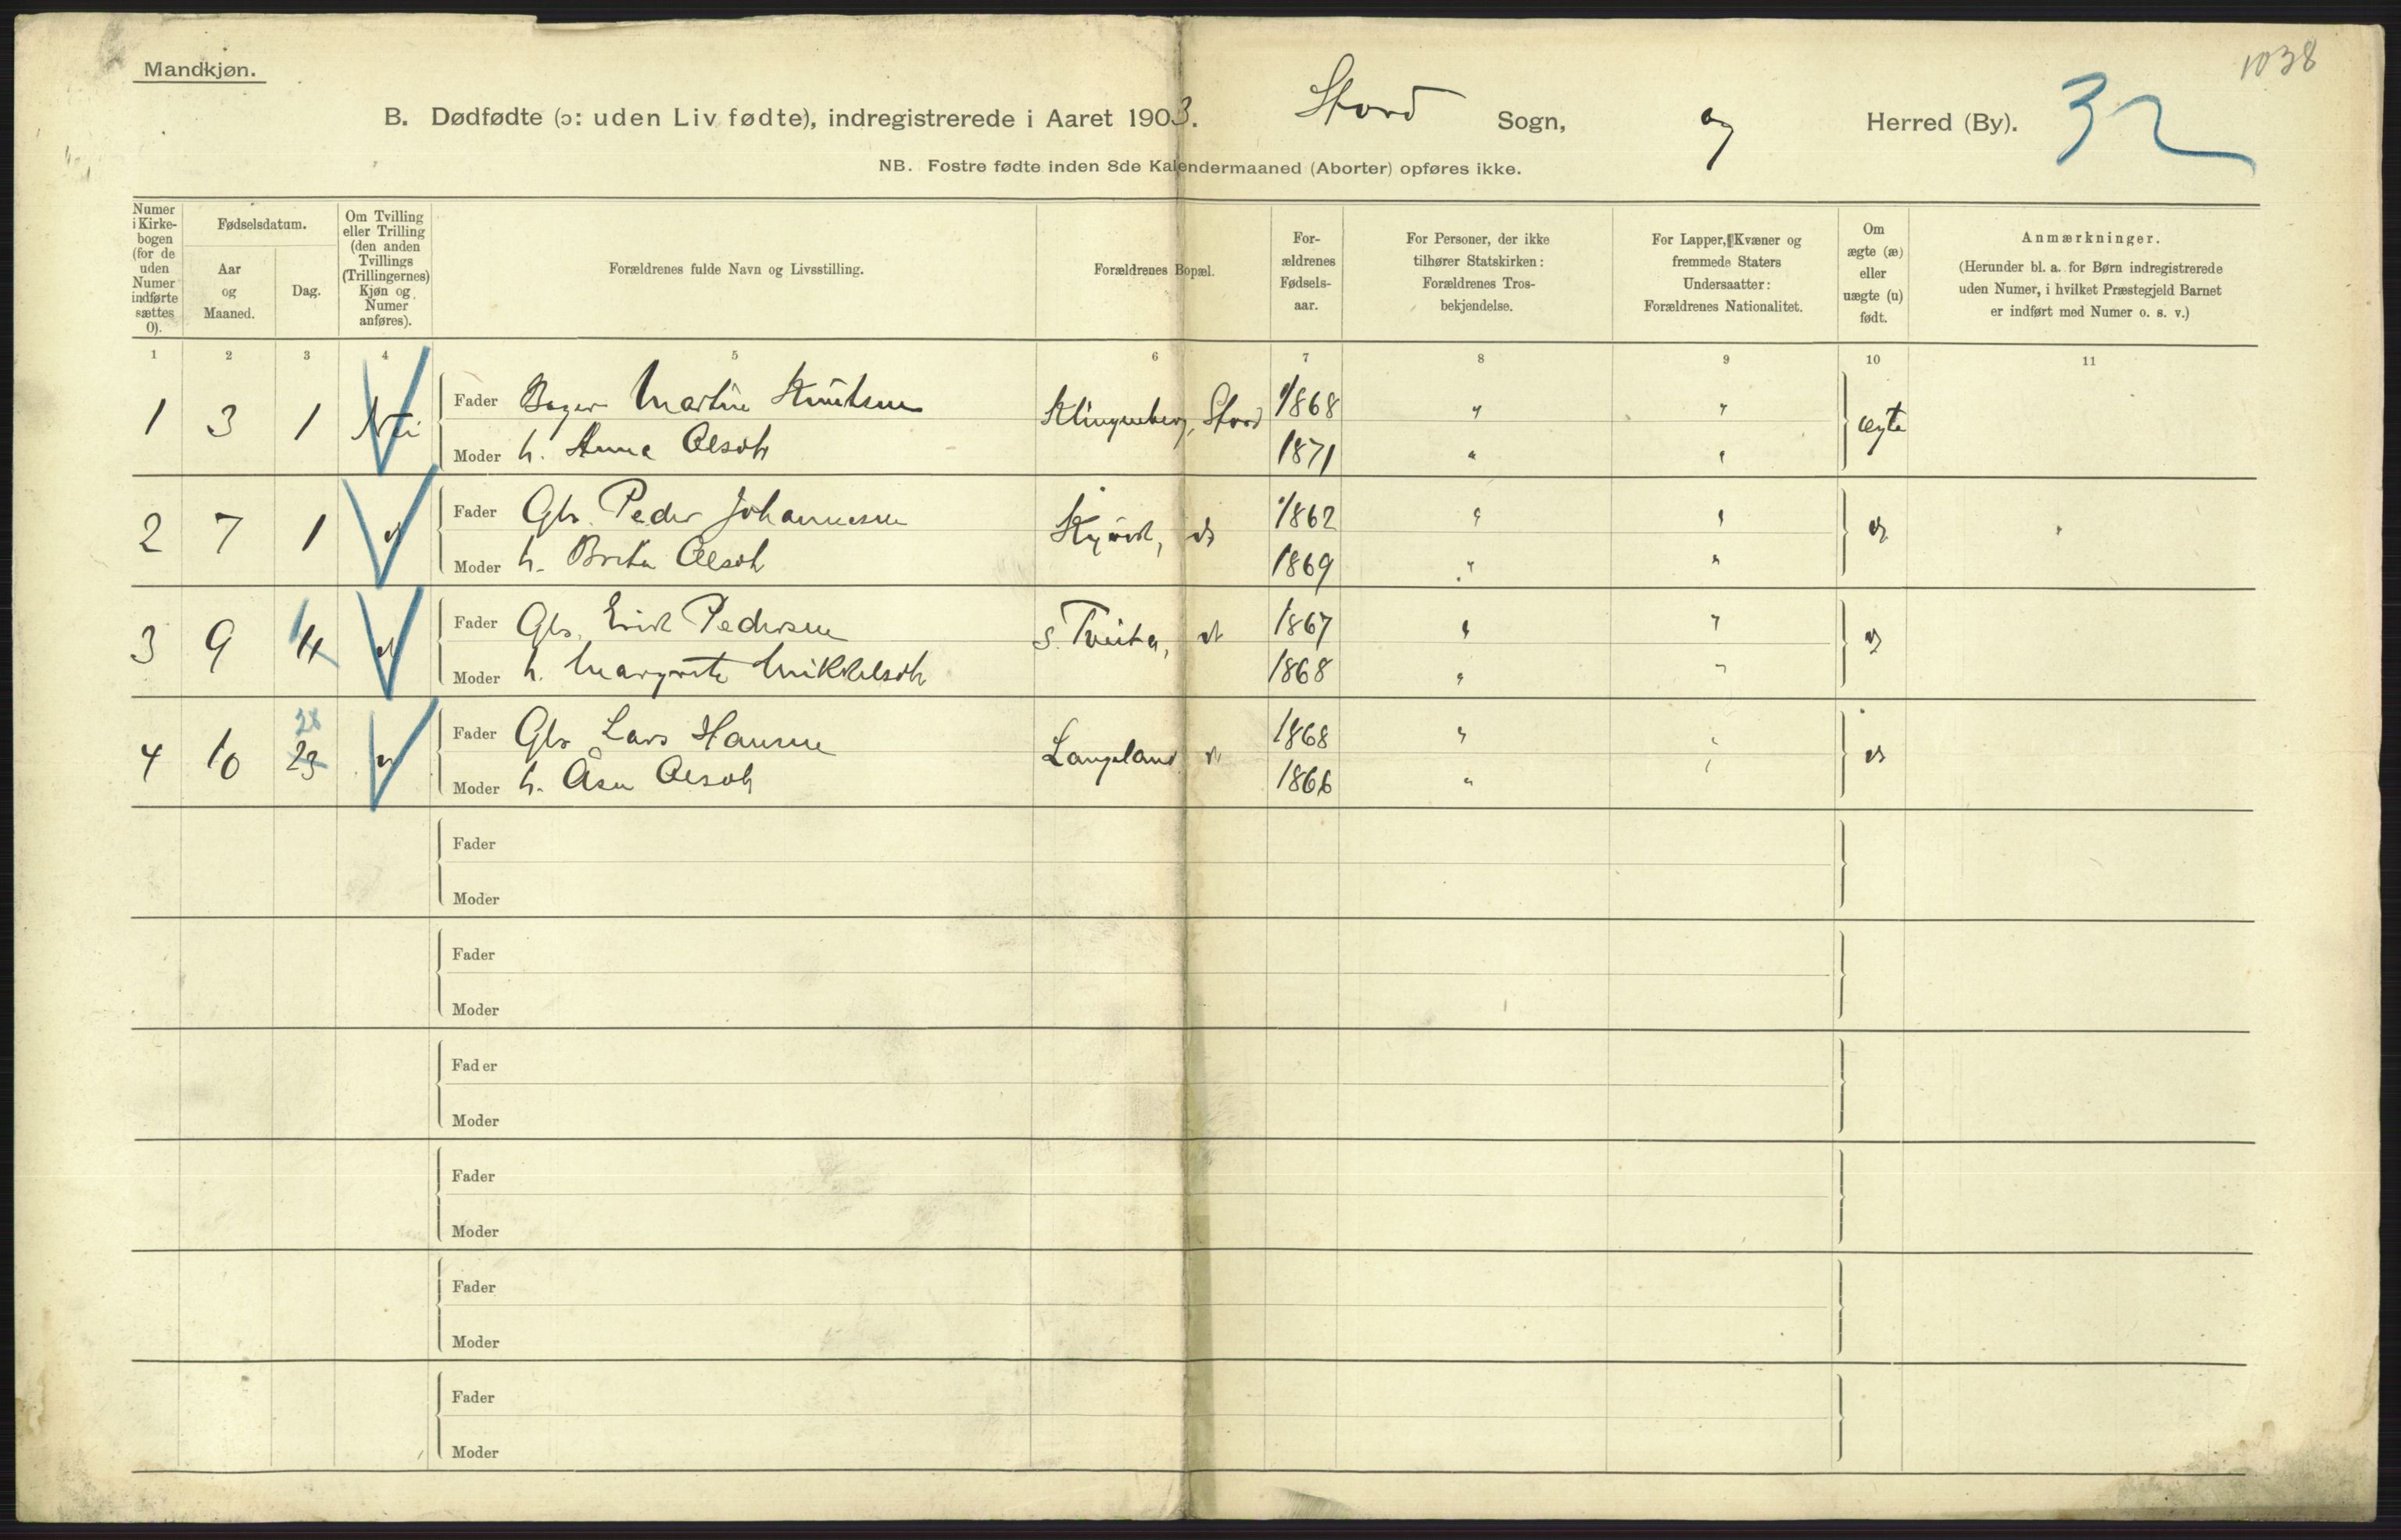 1038
Mandkjøn.
B. Dødfødte (ɔ: uden Liv fødte), indregistrerede i Aaret 1903. Stord Sogn, og Herred (By). 32
NB. Fostre fødte inden 8de Kalendermaaned (Aborter) opføres ikke.
Numer i Kirkebogen (for de uden Numer indførte sættes 0).
Fødselsdatum.
Aar og Maaned.
Dag.
Om Tvilling eller Trilling (den anden Tvillings (Trillingernes) Kjøn og Numer anføres).
Forældrenes fulde Navn og Livsstilling.
Forældrenes Bopæl.
For-
ældrenes
Fødsels-
aar.
For Personer, der ikke
tilhører Statskirken:
Forældrenes Tros-
bekjendelse.
For Lapper, Kvæner og
fremmede Staters
Undersaatter:
Forældrenes Nationalitet.
Om
ægte (æ)
eller
uægte (u)
født.
Anmærkninger.
(Herunder bl. a. for Børn indregistrerede
uden Numer, i hvilket Præstegjeld Barnet
er indført med Numer o. s. v.)
1 2 3 4 5 6 7 8 9 10 11
1 3 1 Nei Fader Bager Martin Knutsen Klingenberg, Stord 1868 " " ægte
Moder h. Anna Olsdtr 1871 " "
2 7 1 Fader Gbr. Peder Johannesen 1862 " "
Moder h. Brita Olsdtr 1869 " "
3 9 Fader Gbr. Erik Pedersen S. Tveita, 1867 " "
Moder h. Margrete Mikkelsdtr 1868 " "
4 10 28 23 Fader Gbr Lars Hansen Langeland 1868 " "
Moder h. Åsa Olsdtr 1866 " "
Fader
Moder
Fader
Moder
Fader
Moder
Fader
Moder
Fader
Moder
Fader
Moder